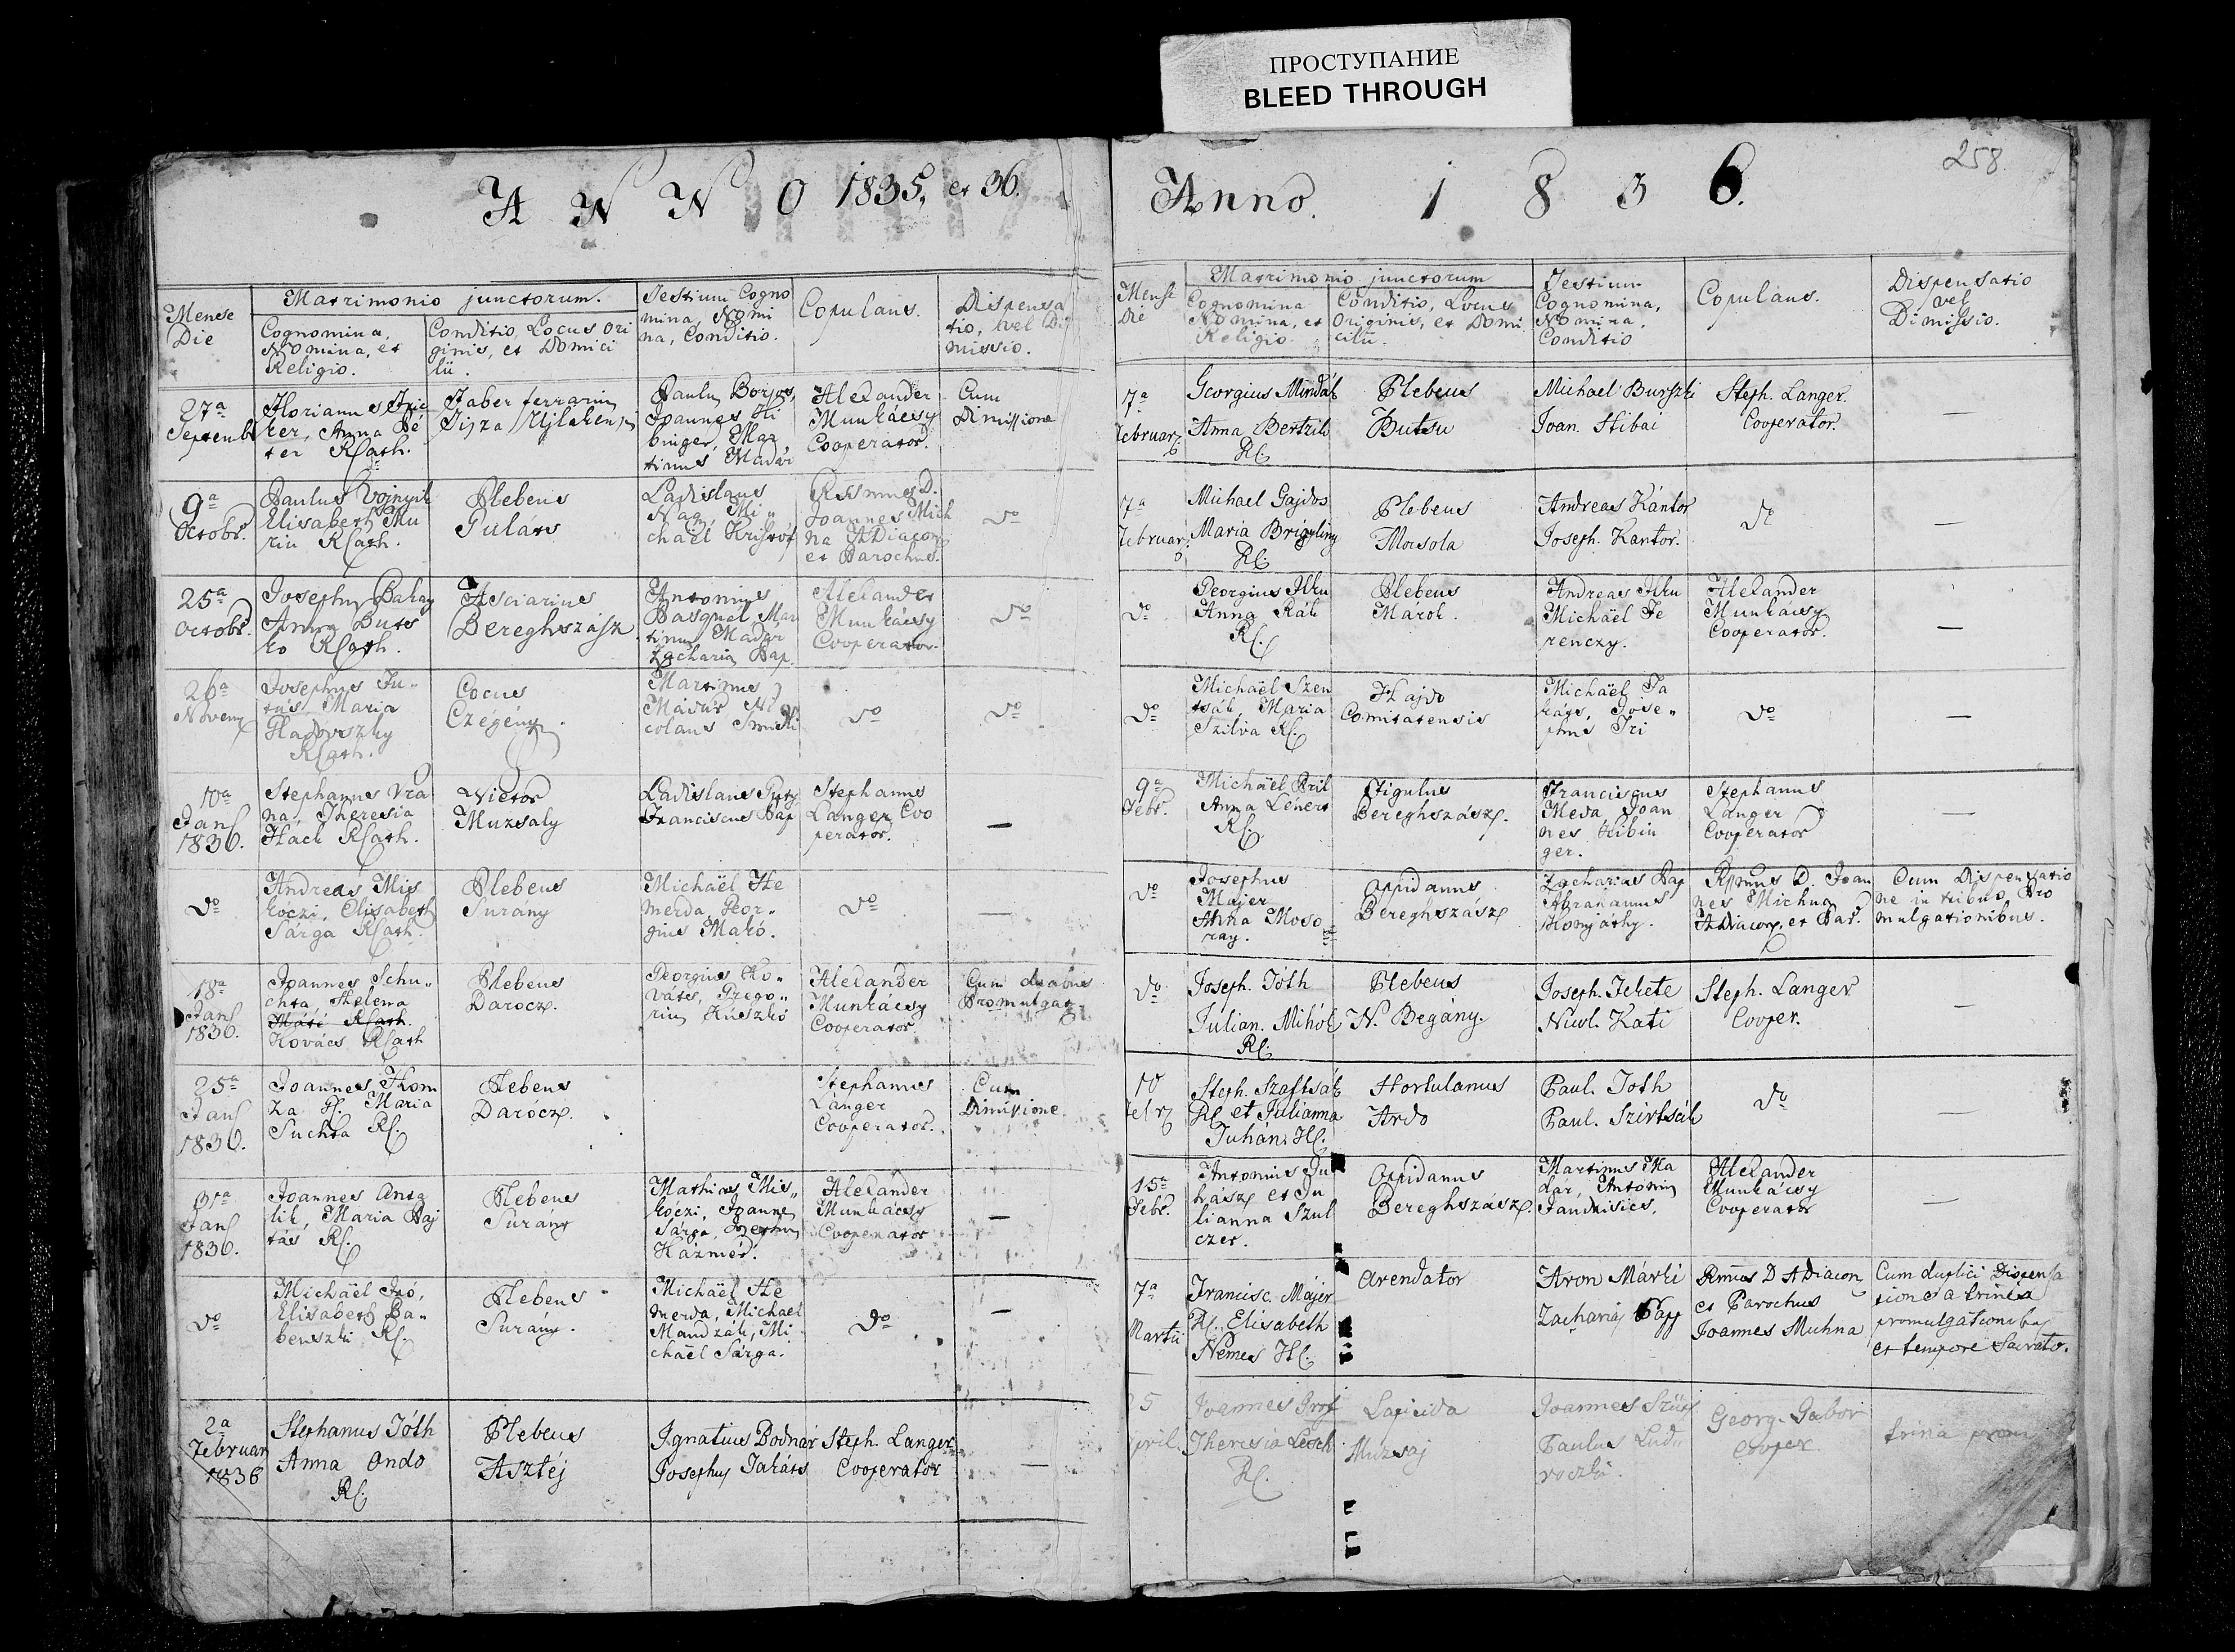 ПРОСТУПАНИЕ
BLEED THROUGH
ANNO 1835, et 36.
Menese
Die
Matrimonio junctorum.
Cognomina,
Nomina, et
Religio.
Conditio Locus Ori
ginis, et Domici
lii.
Testium Cogno
mina, Nomi
na, Conditio.
Copulans.
Dispensa
tio, vel Di
missio.
27a
Septemb
Florianus
ker, Anna Pe
ter RCath.
Faber ferrarius
Tisza Ujlakensis
Paulus Borjos,
Joannes Hi
binger, Mar
tinus Madár
Alexander
Munkácsy
Cooperator.
Cum
Dimissione
9a
Octobr.
Paulus Vojnyil
Elisabeth Mu
rin RCath.
Plebeus
Gulats
Ladislaus
Nagy, Mi
chaël Kristóf
Rssimus D.
Joannes Mich
na ADiacon
et Parochus.
Do
25a
Octobr.
Josephus Bakay
Anna Buts
ko RCath.
Asciarius
Bereghszász
Antonius
Pasquel Mar
tinus Madár
Zacharias Pap.
Alexander
Munkácsy
Cooperator.
Do
26a
Novem
Josephus Fu
tás, Maria
Hadovszky
RCath.
Cocus
Czégény.
Martinus
Madár Ni
colaus
Do
Do
10a
Jan
1836.
Stephanus Vra
na, Theresia
Hack RCath.
Vietor
Muzsaly
Ladislaus
Franciscus Pap
Stephanus
Langer Coo
perator.
—
Do
Andreas Mis
kóczi, Elisabeth
Sárga RCath.
Plebeus
Surány
Michaël He
merda, Geor
gius Makó.
Do
—
18a
Jan
1836.
Joannes Schu
chta, Helena
Máté RCath.
Kovács RCath
Plebeus
Darocz.
Georgius Ko
váts, Grego
rius Kuszkó
Alexander
Munkácsy
Cooperator
Cum duabus
Promulgat
25a
Jan
1836.
Joannes Hom
za Maria
Suchta RC.
Plebeus
Darócz.
Stephanus
Langer
Cooperator.
Cum
Dimissione
31a
Jan
1836.
Joannes Antg
lik, Maria Paj
tás RC.
Plebeus
Surány
Mathias Mis
kóczi, Joannes
Sárga, Josephus
Kázmér.
Alexander
Munkácsy
Cooperator
—
Do
Michaël Iró,
Elisabeth Ba
benszki RC.
Plebeus
Surany.
Michaël He
merda, Michael
Mandzák, Mi
chaël Sárga.
Do
—
2a
Februar
1836
Stephanus Tóth
Anna Ondo
RC.
Plebeus
Asztéj
Ignatius Bodnár
Josephus Takáts
Steph. Langer
Cooperator
—
Anno. 1836.
258.
Mense
Die
Matrimonio junctorum
Cognomina
Nomina, et
Religio.
Conditio, Locus
Originis, et Domi
cilii.
Testium
Cognomina,
Nomina,
Conditio
Copulans.
Dispensatio
vel
Dimissio.
7a
Februar
Georgius Mindák
Anna Bertzik
RC.
Plebeus
Butsu
Michael Burszki
Joan. Hibai
Steph. Langer.
Cooperator.
—
7a
Februar.
Michael Gajdos
Maria Brigyling
RC.
Plebeus
Mosola
Andreas Kántor
Joseph. Kantor.
Do
—
Do
Georgius Hru
Anna Rák
RC.
Plebeus
Márok.
Andreas Hru
Michaël Fe
renczy.
Alexander
Munkácsy
Cooperator.
—
Do
Michaël Szen
tsák, Maria
Szilva RC.
Hajdo
Comitatensis
Michaël Ta
káts, Jose
phus Iri
Do
—
9a
Febr.
Michaël Pril
Anna Lenert
RC.
Figulus
Bereghszász.
Franciscus
Meda, Joan
nes Hibin
ger.
Stephanus
Langer
Cooperator
—
Do
Josephus
Majer
Anna Moso
ray.
Oppidanus
Bereghszász
Zacharias Pap
Abrahamus
Komjáthy.
Rssimus D. Joan
nes Michna
ADiacon, et Par.
Cum Dispensatio
ne in tribus Pro
mulgationibus.
Do
Joseph. Tóth
Julian. Mihók
RC.
Plebeus
N. Begány.
Joseph. Fekete
Nicol. Kati
Steph. Langer
Cooper.
—
10
Febr
Steph. Szaftsák
RC et Julianna
Juhán. HC.
Hortulanus
Ardo
Paul. Toth
Paul. Szirtsák
Do
—
15a
Febr.
Antonius Ju
hász et Ju
lianna Szul
czer.
Oppidanus
Bereghszász.
Martinus Ma
dár, Antonius
Jandrisics.
Alexander
Munkácsy
Cooperator
—
7a
Martii
Francisc. Májer
RC. Elisabeth
Nemes HC.
Arendator
Aron Márki
Zacharias Papp
Rmus D ADiacon
et Parochus
Joannes Muhna
Cum duplici Dispensa
tione a trinis
promulgationibus
et tempore Sacrato.
5
pril.
Joannes Prof
Theresia Lesch
RC.
Lapicida
Muzsaj
Joannes Szűts
Paulus Lud
roczki.
Georg. Gabor
cooper.
trina prom